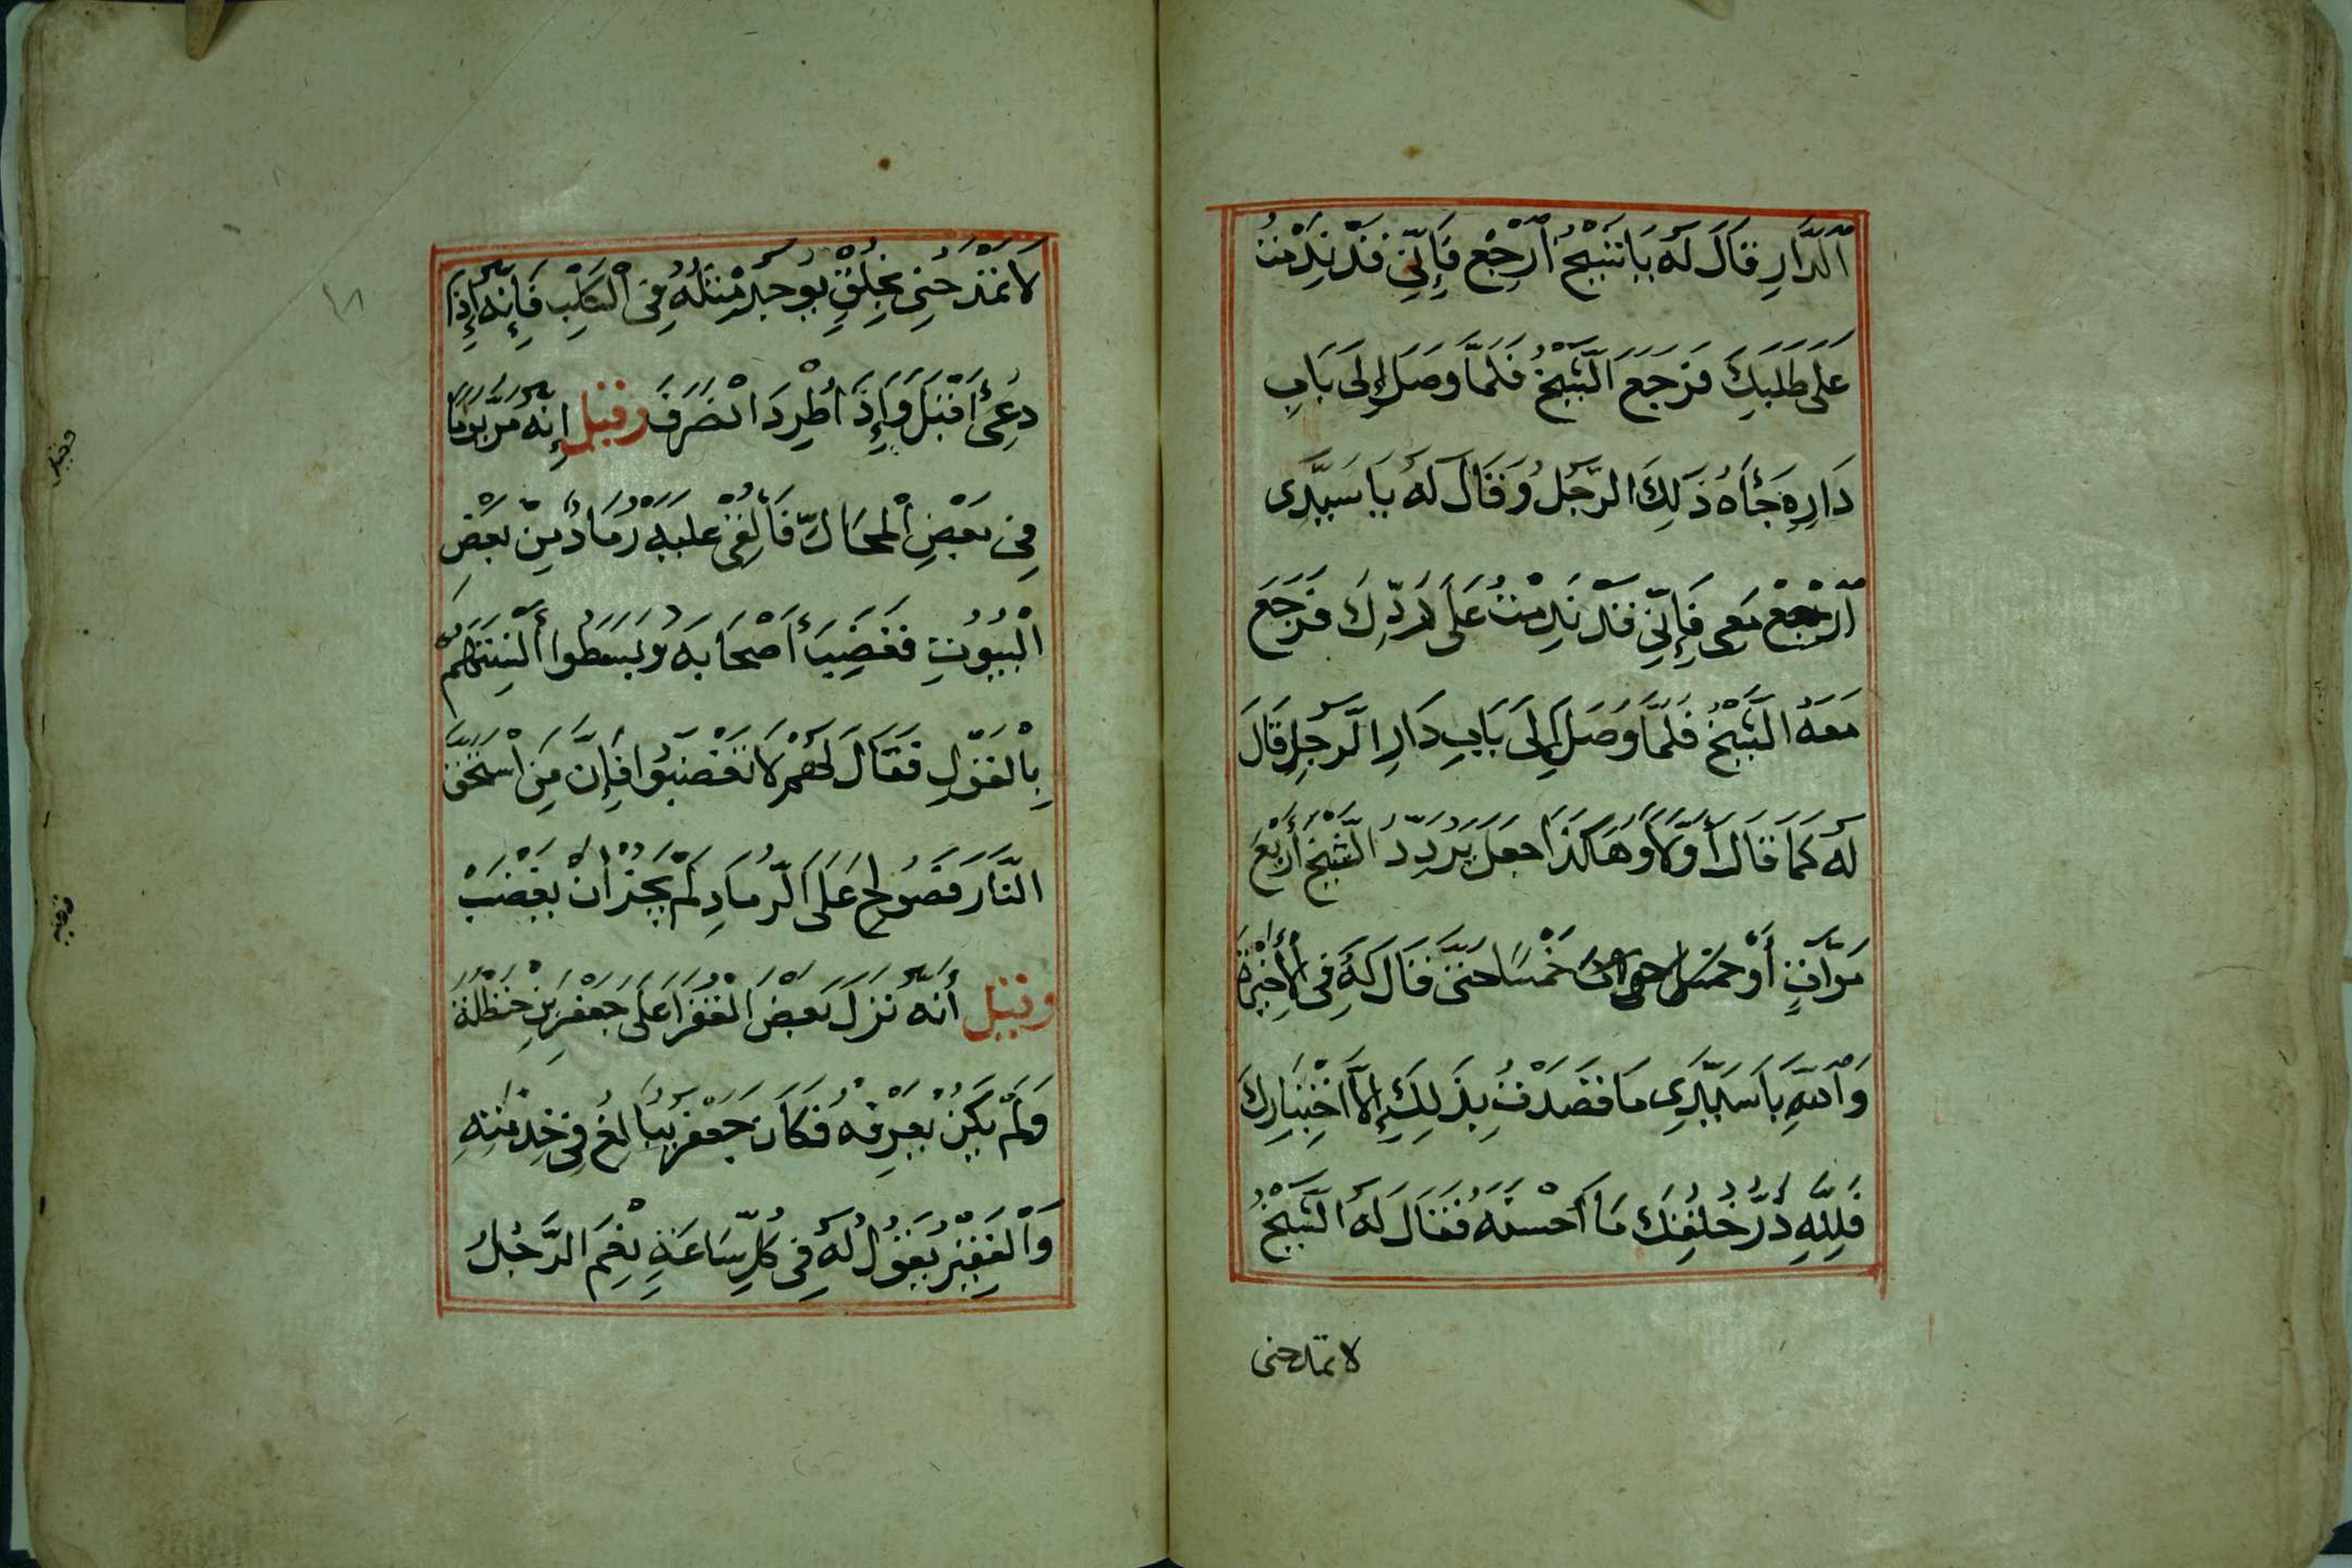 اَلدَّارِ قَالَ لَهُ يَا شَيْخُ اَرْجِعْ فَاِنِّي قَدْ نَدِمْتُ
عَلَى طَلَبِكَ فَرَجَعَ الشَّيْخُ فَلَمَّا وَصَلَ إِلَى بَابِ
دَارِهِ جَأَهُ ذَلِكَ الرَّجُلُ وَقَالَ لَهُ يَا سَيِّدِى
اَرْجِعْ مَعِى فَإِنِّي قَدْ نَدِمْتُ عَلَى رَدِّكَ فَرَجَعَ
مَعَهُ الشَّيْخُ فَلَمَّا وَصَلَ إِلَى بَابِ دَارِ الرَّجُلِ قَالَ
لَهُ كَمَا قَالَ أَوَّلًا وَهَاكَذَا جَعَلَ يُرَدِّدُ الشَّيْخَ أَرْبَعَ
مَرَّاتٍ أَوْ خَمْسًا حَتَّى قَالَ لَهُ فِى الْأَخِيْرَةِ
وَاَللَّهِ يَا سَيِّدِى مَا قَصَدْتُ بِذَلِكَ إِلَّا اَخْتِبَارِكَ
فَلِلَّهِ دَرُّ خُلُقِكَ مَا أَحْسَنَهُ فَقَالَ لَهُ الشَّيْخُ
لا تمدحنى
لَا تَمْدَحُنِى بِخُلُقٍ يُوجَدُ مِثْلُهُ فِى الْكَلْبِ فَإِنَّهُ إِذَا
دُعِىَ أَقْبَلَ وَإِذَا اُطْرِدَ انْصَرَفَ وقيل إِنَّهُ مَرَّ يَوْمًا
فِى بَعْضِ الْمَحَالِّ فَأُلْقِىَ عَلَيْهِ رَمَادٌ مِنْ بَعْضِ
الْبُيُوتِ فَغَضِبَ أَصْحَابُهُ وَبَسَطُوا أَلْسِنَتَهُمْ
بِالْقَوْلِ فَقَالَ لَهُمْ لَا تَغْضَبُوا فَإِنَّ مَنِ اسْتَحَقَّ
النَّارَ فَصُولِحَ عَلَى الرَّمَادِ لَمْ يَجُزْ أَنْ يَغْضَبَ
وقيل أَنَّهُ نَزَلَ بَعْضُ الْفُقَرَا عَلَى جَعْفَرِ بْنِ حَنْظَلَةَ
وَلَمْ يَكُنْ يَعْرِفُهُ فَكَانَ جَعْفَرُ يُبَالِغُ فِى خِدْمَتِهِ
وَالْفَقِيْرُ يَقُولُ لَهُ فِى كُلِّ سَاعَةٍ نِعْمَ الرَّجُلُ